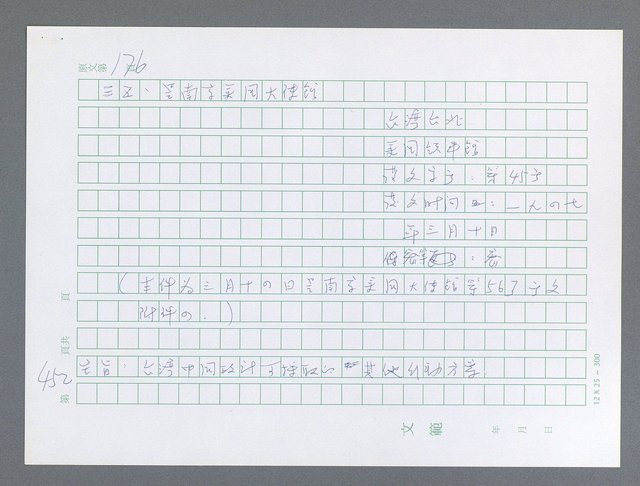 原文第176頁
三五、呈南京美国大使館
台湾台北
美国領事館
发文字字:第45字
发文时间:一九四七
年三月十日
(主件为三月十四日呈南京美国大使館第563字文
附件四.)
主旨:台湾中国政计可採取的其他行動方案.
第452頁共 頁
12 X 25 = 300
文範
年 月 日